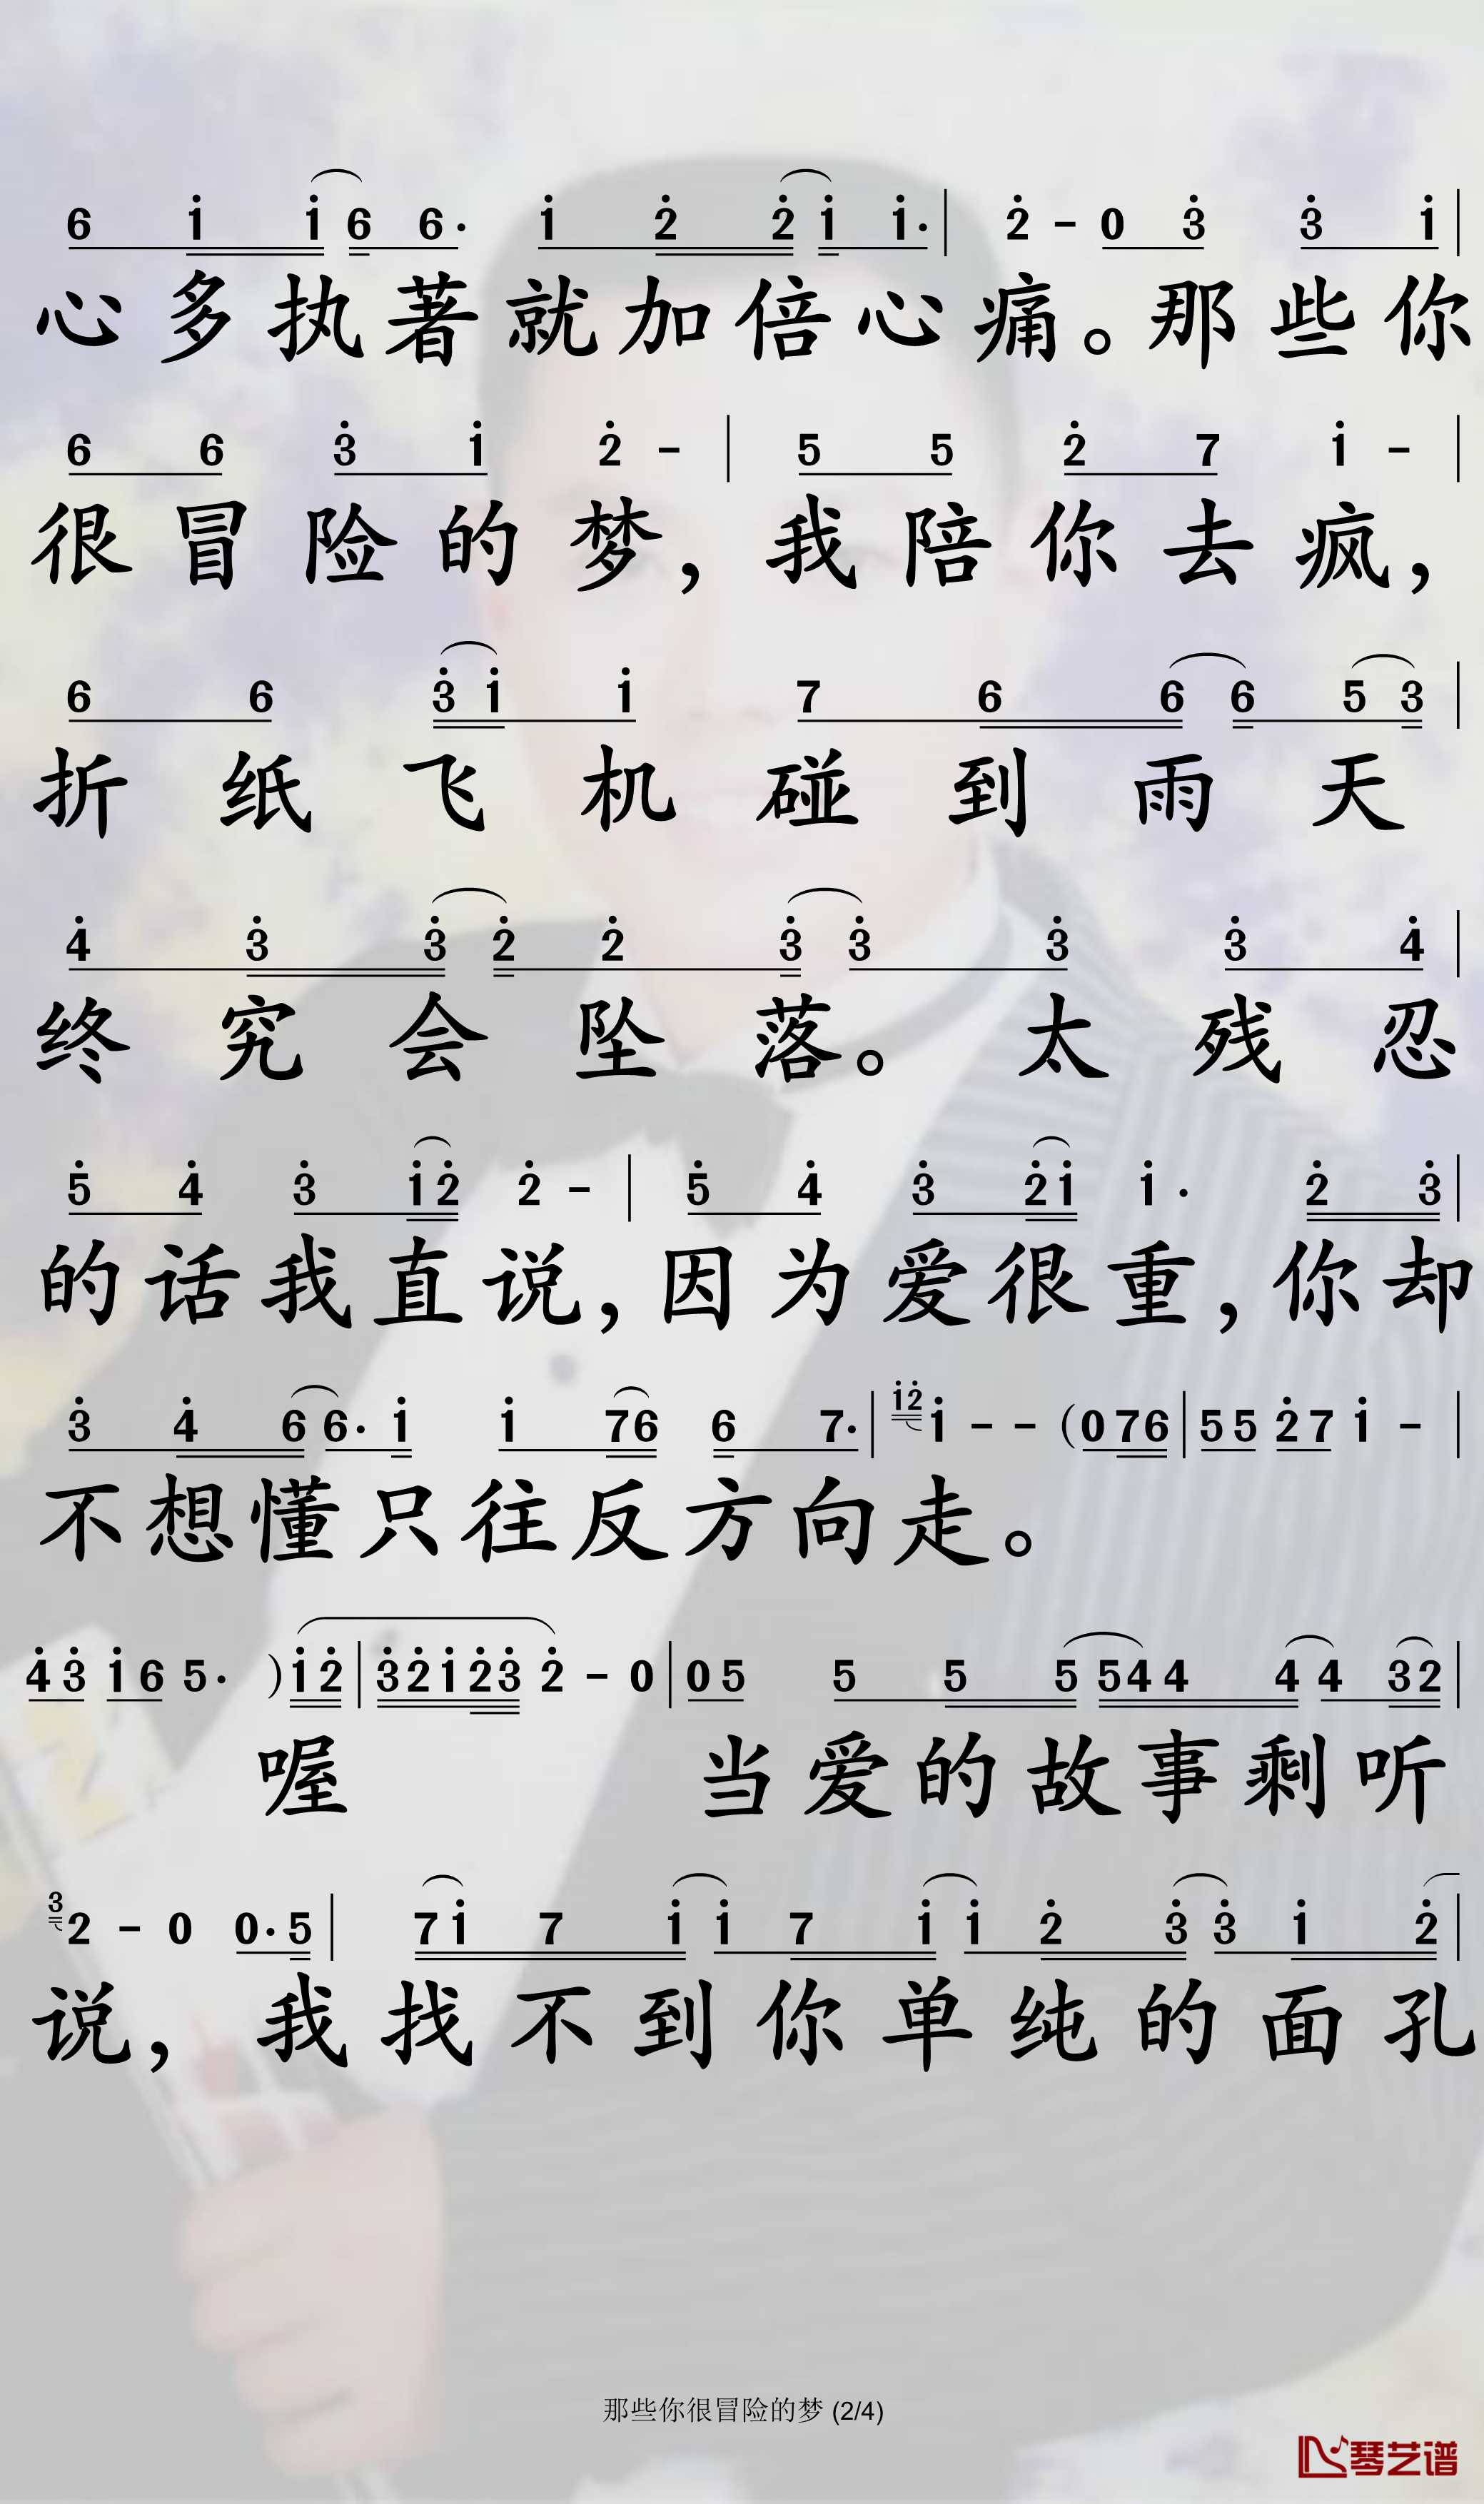 6 i i 6 6· i 2 2 i i· | 2 - 0 3 3 i |
心多执著就加倍心痛。那些你
6 6 3 i 2 - | 5 5 2 7 i - |
很冒险的梦，我陪你去疯，
6 6 3 i i 7 6 6 6 5 3 |
折纸飞机碰到雨天
4 3 3 2 2 3 3 3 3 4 |
终究会坠落。太残忍
5 4 3 i 2 2 - | 5 4 3 2 i i · 2 3 |
的话我直说，因为爱很重，你却
3 4 6 6· i i 7 6 6 7· | i 2 i - - (0 7 6 | 5 5 2 7 i - |
不想懂只往反方向走。
4 3 i 6 5· ) i 2 | 3 2 i 2 3 2 - 0 | 0 5 5 5 5 5 4 4 4 4 3 2 |
喔 当爱的故事剩听
3 2 - 0 0· 5 | 7 i 7 i i 7 i i 2 3 3 i 2 |
说，我找不到你单纯的面孔
那些你很冒险的梦 (2/4)
琴艺谱